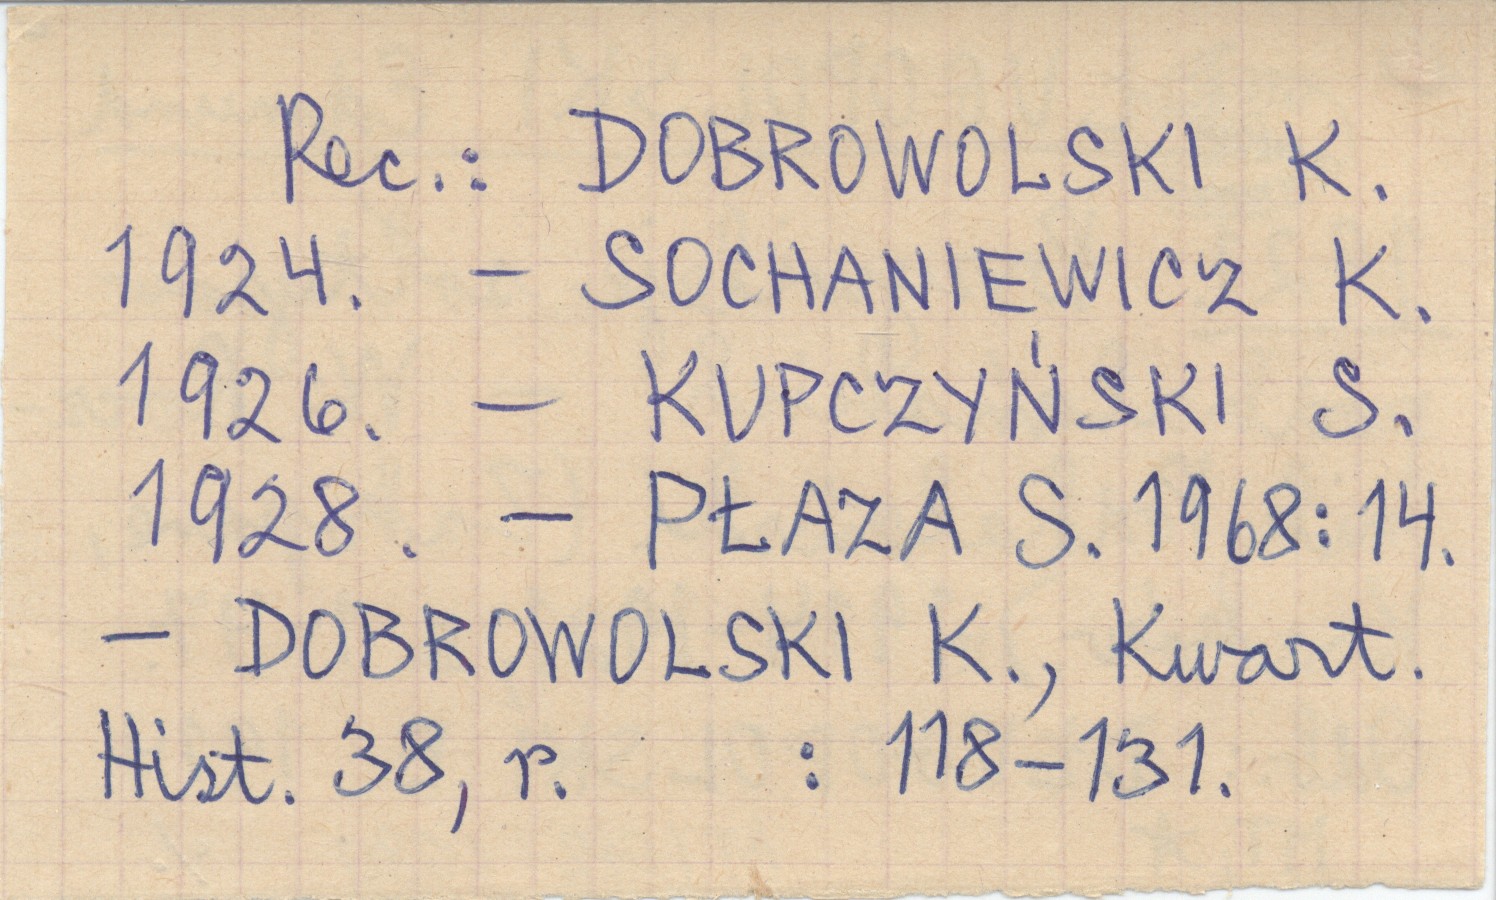 Rec.: DOBROWOLSKI K.
1924. – SOCHANIEWICZ K.
1926. – KUPCZYŃSKI S.
1928. – PŁAZA S. 1968: 14.
– DOBROWOLSKI K., Kwart.
Hist. 38, r. : 118–131.